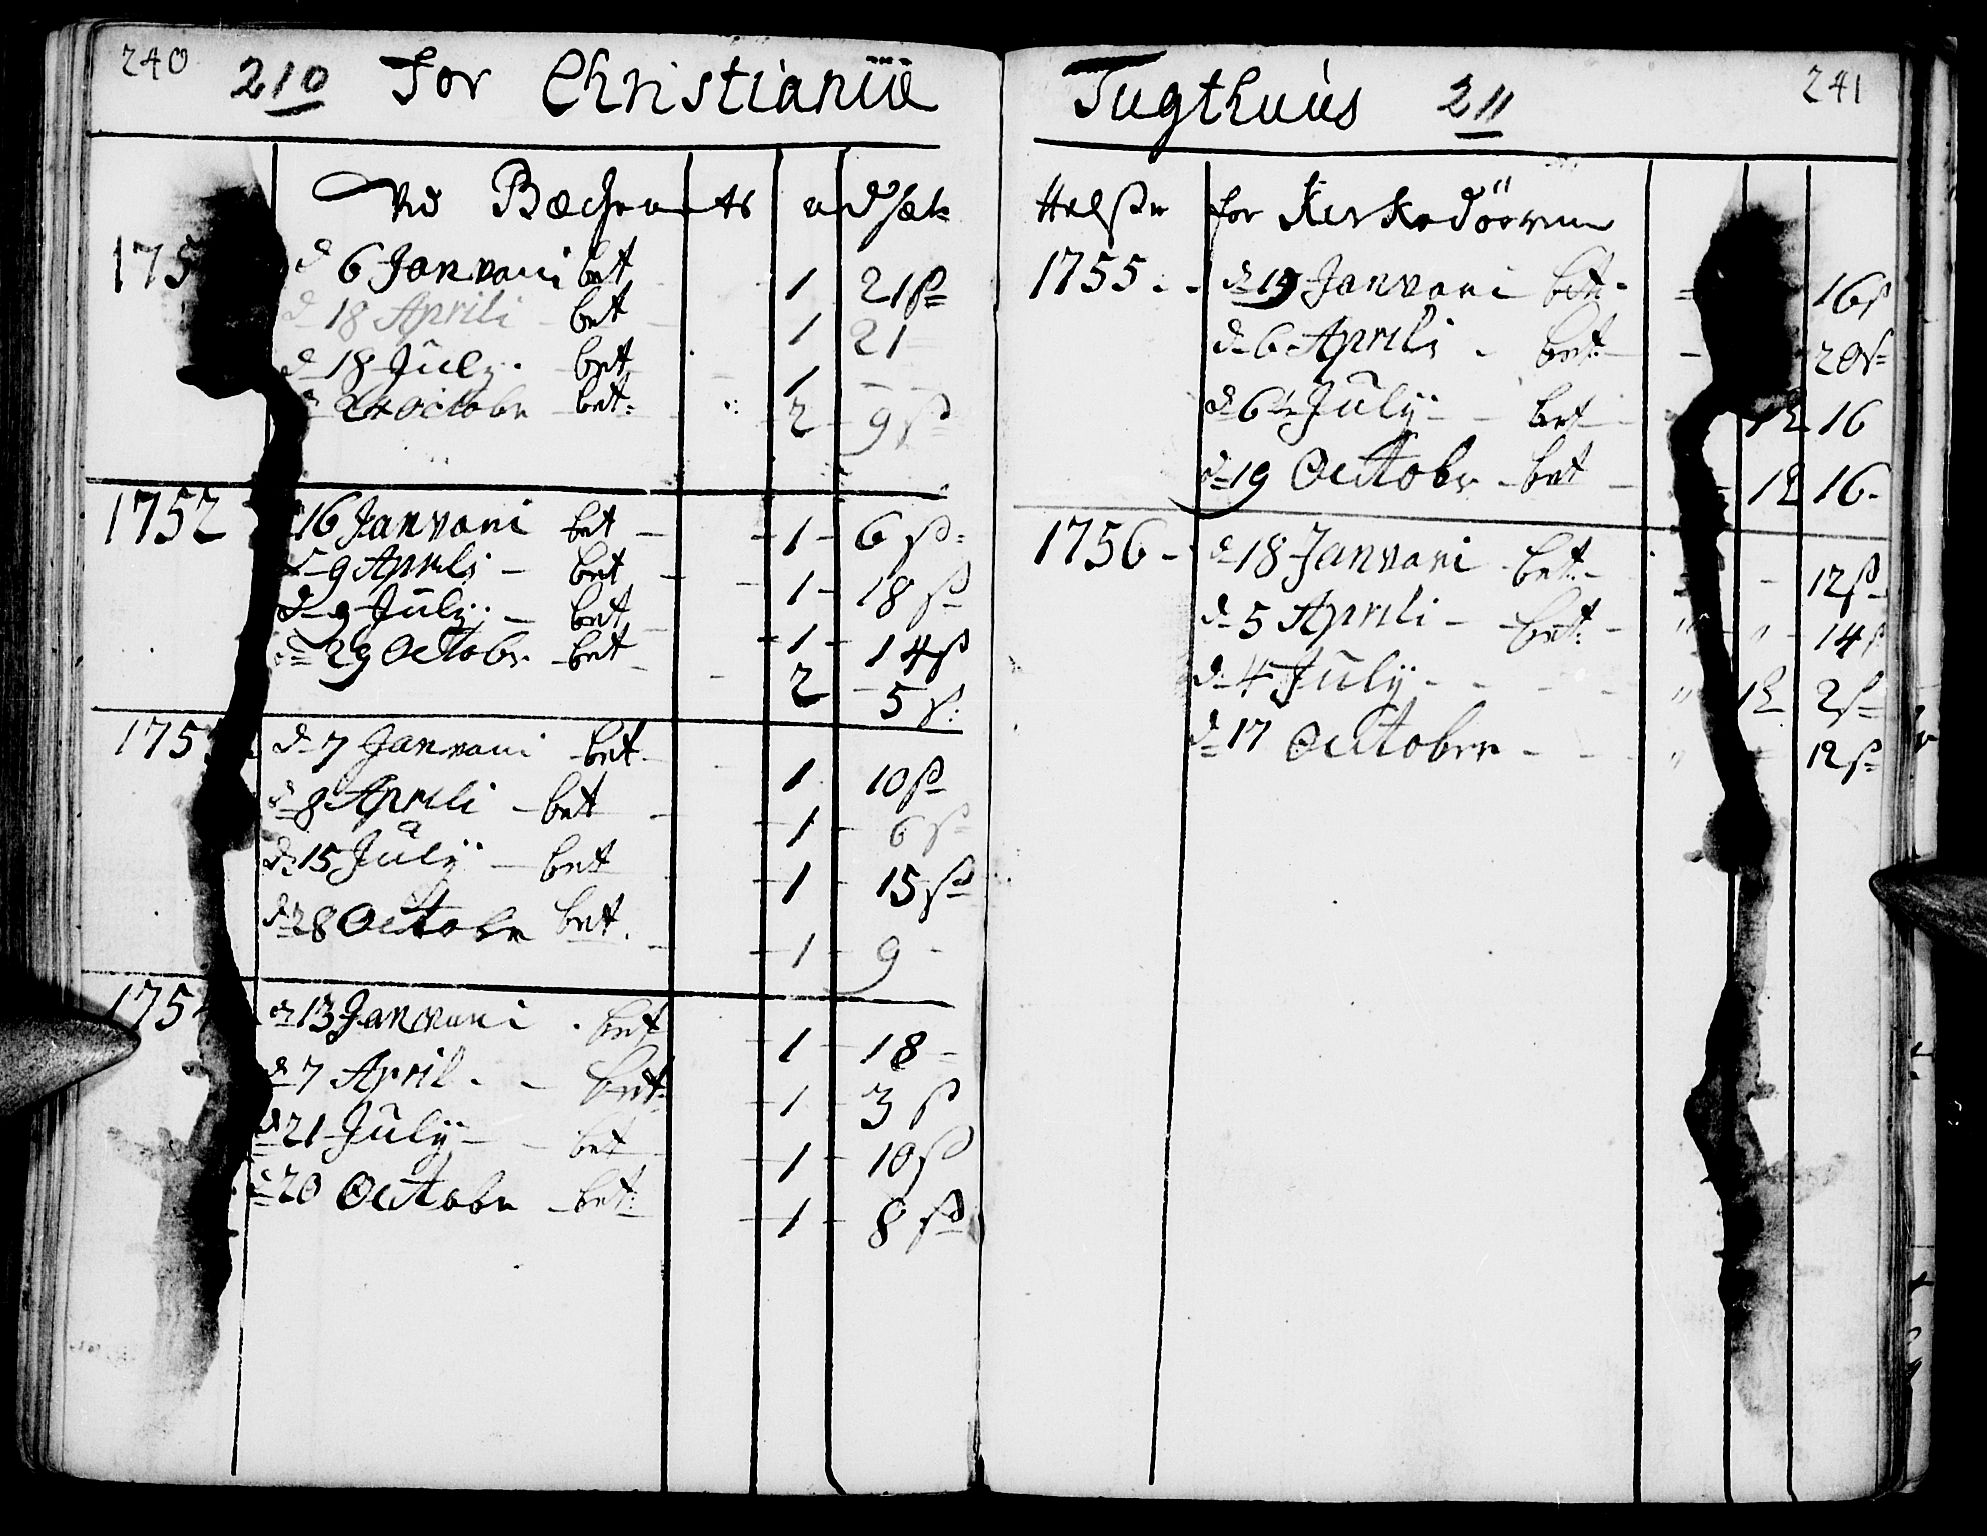 240
210 For Christianiæ
Ved Bæchen
175
d 6 Janvari bet 1 21 ß
d 18 Aprili bet 1 21
d 18 July bet 1 - -
d 24 Octobr bet: 2 9 ß
1752 16 Janvari bet 1 6 ß
d 9 Aprili bet 1 18 ß
d 9 July bet 1 14 ß
d 29 Octobr bet 2 5 ß
175 d 7 Janvari bet 1 10 ß
d 8 Aprili bet 1 6 ß
d 15 July bet 1 15 ß
d 28 Octobr bet 1 9
1754 d 13 Janvari bet 1 18
d 7 April bet 1 3 ß
d 21 July bet 1 10 ß
d 20 Octobr bet: 1 8 ß
241
Tugthuus 211
for Kirkedörren
1755 d 19 Janvari bet 16 ß
d 6 Aprili bet 20 ß
d 6 July bet 12 16
d 19 Octobr bet 12 16
1756 d 18 Janvari bet 12 ß
d 5 Aprili bet: 14 ß
d 4 July 12 2 ß
d 17 October 12 ß